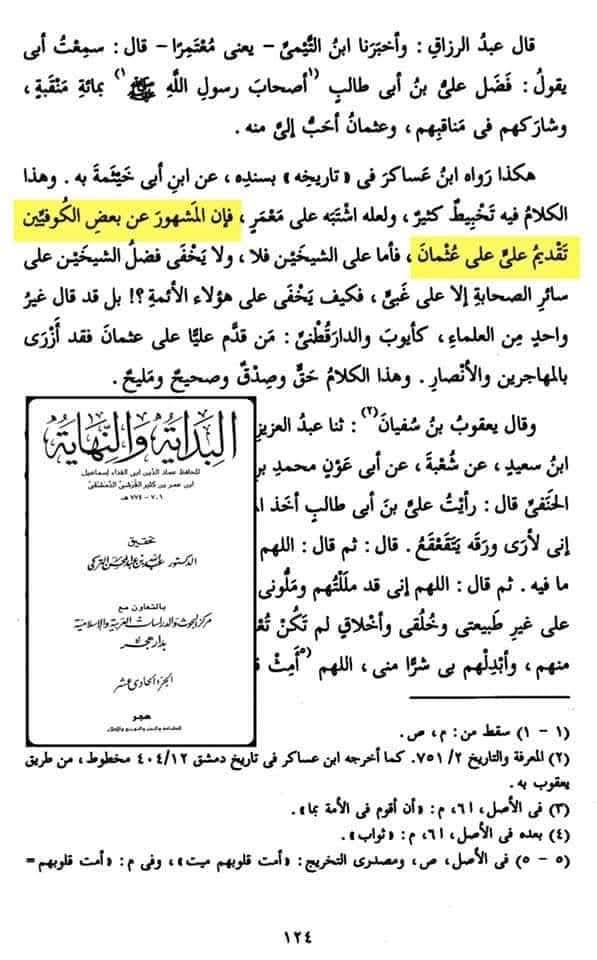 قال عبدُ الرزاقِ : وأخبَرَنا ابنُ التَّيْمىِّ – يعنى مُعْتَمِرًا – قال : سمِعْتُ أبى
يقولُ : فَضَل علىُّ بنُ أبى طالبٍ (١أصحابَ رسولِ اللَّهِ ﷺ١) بمائةِ مَنْقَبةٍ ،
وشارَكهم فى مَناقبِهم ، وعثمانُ أحَبُّ إلىَّ منه .
هكذا رَواه ابنُ عَساكرَ فى « تاريخِه » بسندِه ، عن ابنِ أبى خَيْثَمةَ به . وهذا
الكلامُ فيه تَخْبِيطٌ كثيرٌ ، ولعله اشْتَبه على مَعْمَرٍ ، فإن المَشهورَ عن بعضِ الكُوفيِّين
تَقْديمُ علىٍّ على عُثْمانَ ، فأما على الشيخَيْن فلا ، ولا يَخْفَى فضلُ الشيخَيْن على
سائرِ الصحابةِ إلا على غَبىٍّ ، فكيف يَخْفَى على هؤلاء الأئمةِ ؟! بل قد قال غيرُ
واحدٍ مِن العلماءِ ، كأيوبَ والدارَقُطْنىِّ : مَن قدَّم عليًّا على عثمانَ فقد أَزْرَى
بالمهاجرين والأنْصارِ . وهذا الكلامُ حَقٌّ وصِدْقٌ وصحيحٌ ومَليحٌ .
وقال يعقوبُ بنُ سُفيانَ(٢) : ثنا عبدُ العزيزِ
ابنُ سعيدٍ ، عن شُعْبةَ ، عن أبى عَوْنٍ محمدِ بنِ
الحنَفىِّ قال : رأيْتُ علىَّ بنَ أبى طالبٍ أخَذ
إنى لأرَى ورَقَه يَتَقَعْقَعُ . قال : ثم قال : اللهم
ما فيه . ثم قال : اللهم إنى قد ملَلْتُهم ومَلُّونى
على غيرِ طَبيعتى وخُلُقى وأخْلاقٍ لم تَكُنْ
منهم ، وأبْدِلْهم بى شرًّا منى ، اللهم (٥أَمِثْ
البداية والنهاية
للحافظ عماد الدين أبى الفداء إسماعيل
ابن عمر بن كثير القرشى الدمشقى
٧٠١ - ٧٧٤ هـ
تحقيق
الدكتور عبد الله بن عبد المحسن التركى
بالتعاون مع
مركز البحوث والدراسات العربية والإسلامية
بدار هجر
الجزء الحادى عشر
هجر
للطباعة والنشر والتوزيع والإعلان
(١ – ١) سقط من : م ، ص .
(٢) المعرفة والتاريخ ٢/ ٧٥١. كما أخرجه ابن عساكر فى تاريخ دمشق ٤٠٤/١٢ مخطوط ، من طريق
يعقوب به .
(٣) فى الأصل ، ٦١ ، م : « أن أقوم فى الأمة بما » .
(٤) بعده فى الأصل ، ٦١ ، م : « ثواب » .
(٥ – ٥) فى الأصل ، ص ، ومصدرى التخريج : « أمت قلوبهم ميت » ، وفى م : « أمت قلوبهم =
١٢٤